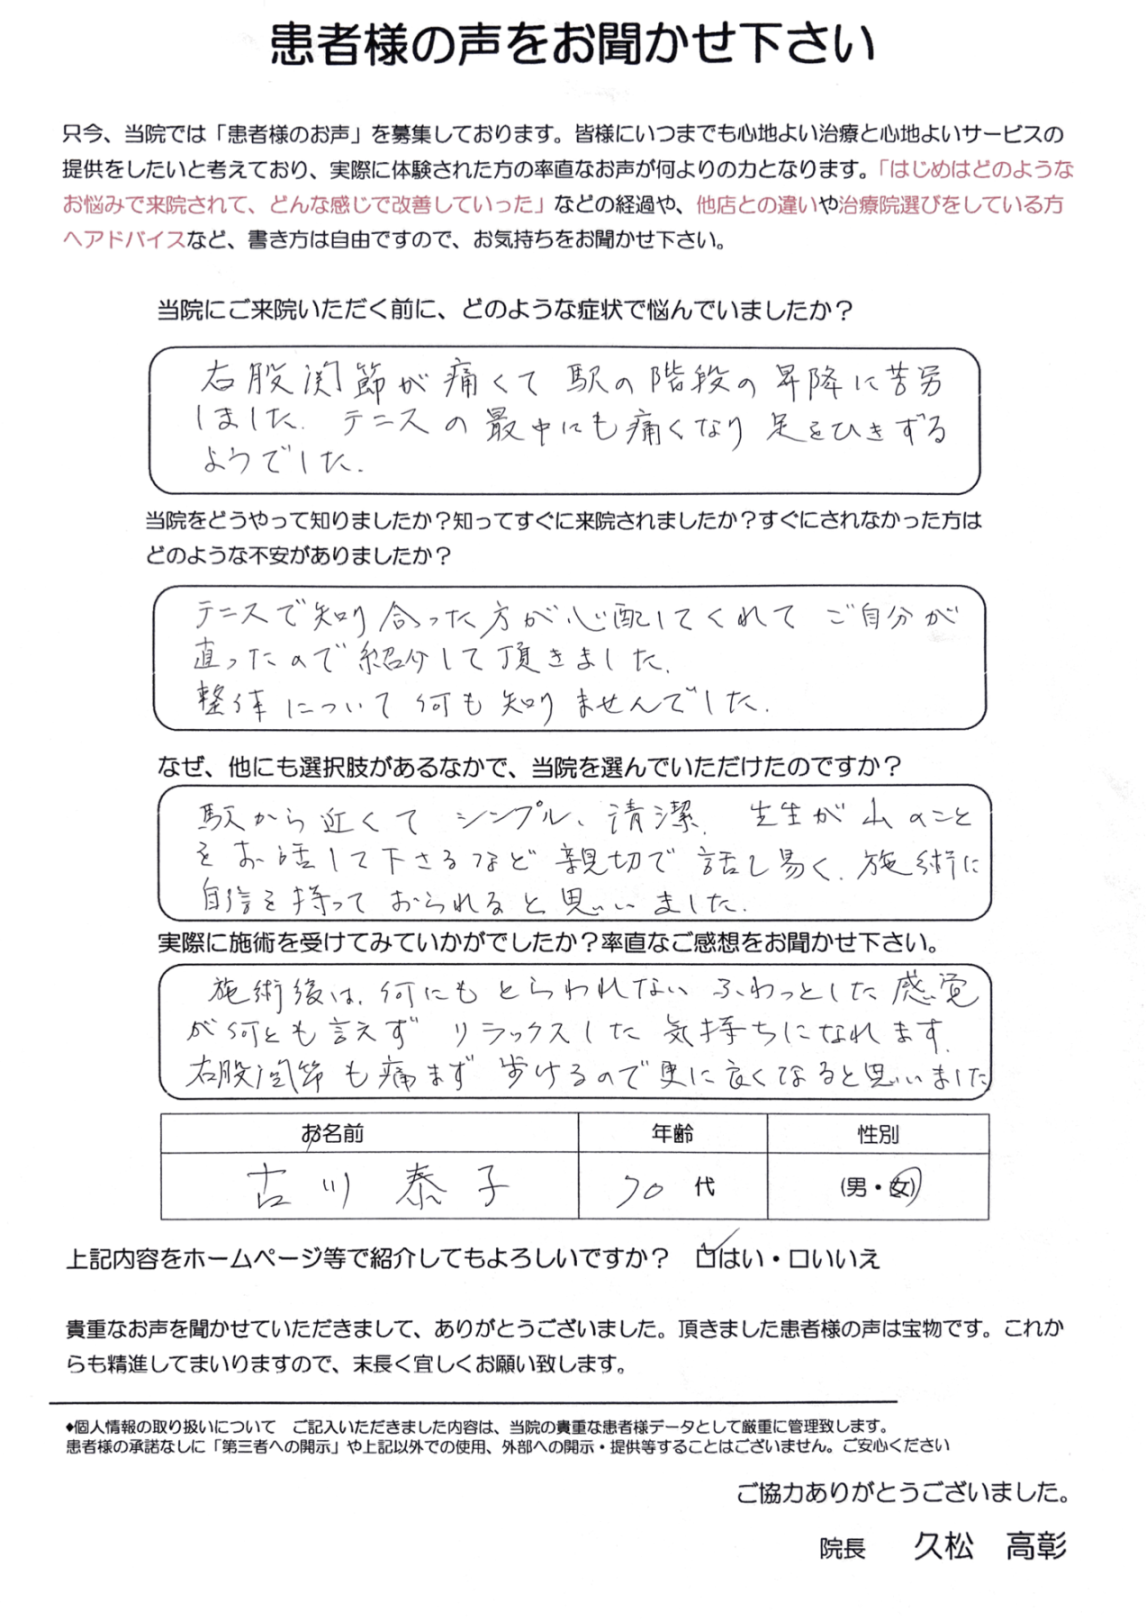 患者様の声をお聞かせ下さい
只今、当院では「患者様のお声」を募集しております。皆様にいつまでも心地よい治療と心地よいサービスの
提供をしたいと考えており、実際に体験された方の率直なお声が何よりの力となります。「はじめはどのような
お悩みで来院されて、どんな感じで改善していった」などの経過や、他店との違いや治療院選びをしている方
へアドバイスなど、書き方は自由ですので、お気持ちをお聞かせ下さい。
当院にご来院いただく前に、どのような症状で悩んでいましたか？
右股関節が痛くて 駅の階段の昇降に苦労
しました. テニスの最中にも痛くなり 足をひきずる
ようでした.
当院をどうやって知りましたか？知ってすぐに来院されましたか？すぐにされなかった方は
どのような不安がありましたか？
テニスで知り合った方が心配してくれて ご自分が
直ったので紹介して頂きました.
整体について何も知りませんでした.
なぜ、他にも選択肢があるなかで、当院を選んでいただけたのですか？
駅から近くて シンプル、清潔. 先生が 山のこと
をお話して下さるなど 親切で 話し易く. 施術に
自信を持っておられると思いました.
実際に施術を受けてみていかがでしたか？率直なご感想をお聞かせ下さい。
施術後は、何にもとらわれない ふわっとした感覚
が何とも言えず リラックスした 気持ちになれます.
右股関節も痛まず 歩けるので更に良くなると思いました
お名前 年齢 性別
古川 泰子 70 代 (男・女)
上記内容をホームページ等で紹介してもよろしいですか？ ☑はい・□いいえ
貴重なお声を聞かせていただきまして、ありがとうございました。頂きました患者様の声は宝物です。これか
らも精進してまいりますので、末長く宜しくお願い致します。
◆個人情報の取り扱いについて ご記入いただきました内容は、当院の貴重な患者様データとして厳重に管理致します。
患者様の承諾なしに「第三者への開示」や上記以外での使用、外部への開示・提供等することはございません。ご安心ください
ご協力ありがとうございました。
院長 久松 高彰